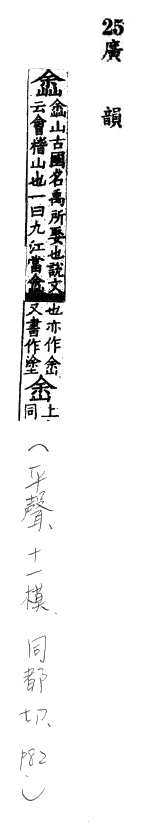 25廣韻
嵞嵞山古國名禹所娶也說文
云會稽山也一曰九江當嵞
也亦作峹
又書作塗
峹上同
（平聲、十一模、同都切、P82）